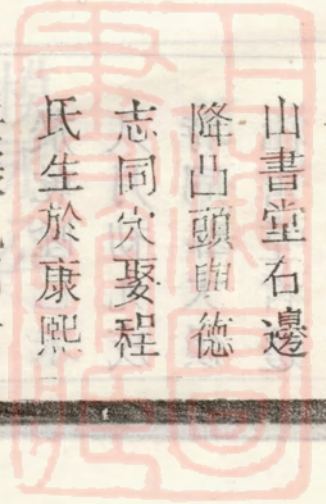 山書堂右邊
降凸頭與德
志同穴娶程
氏生於康熙